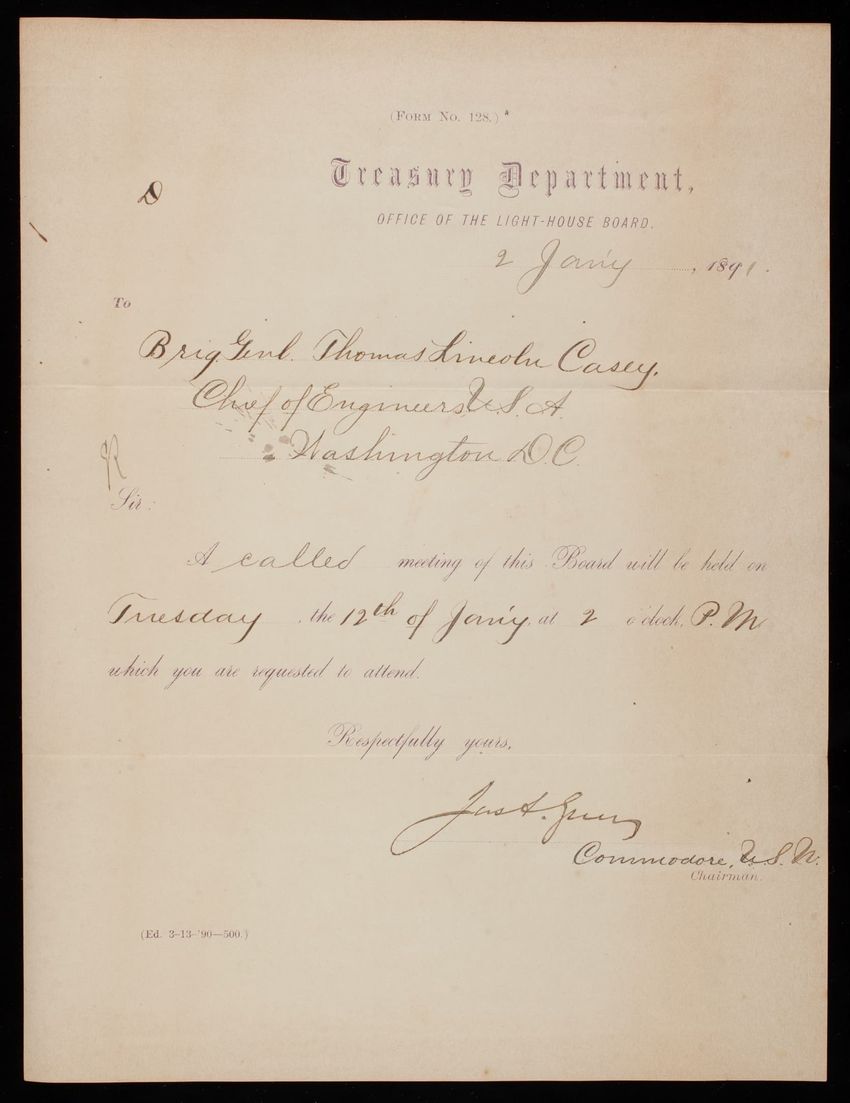 (FORM No. 128.)
Treasury Department,
OFFICE OF THE LIGHT-HOUSE BOARD.
2 Jan'y, 1891.
To
Brig. Genl. Thomas Lincoln Casey.
Chief of Engineers U.S.A.
Washington D.C.
Sir:
A called meeting of this Board will be held on
Tuesday, the 12th of Jan'y, at 2 o'clock, P.M.
which you are requested to attend.
Respectfully yours,
Jas A. Greer
Commodore, U.S.N.
Chairman.
(Ed. 3-13-'90—500.)